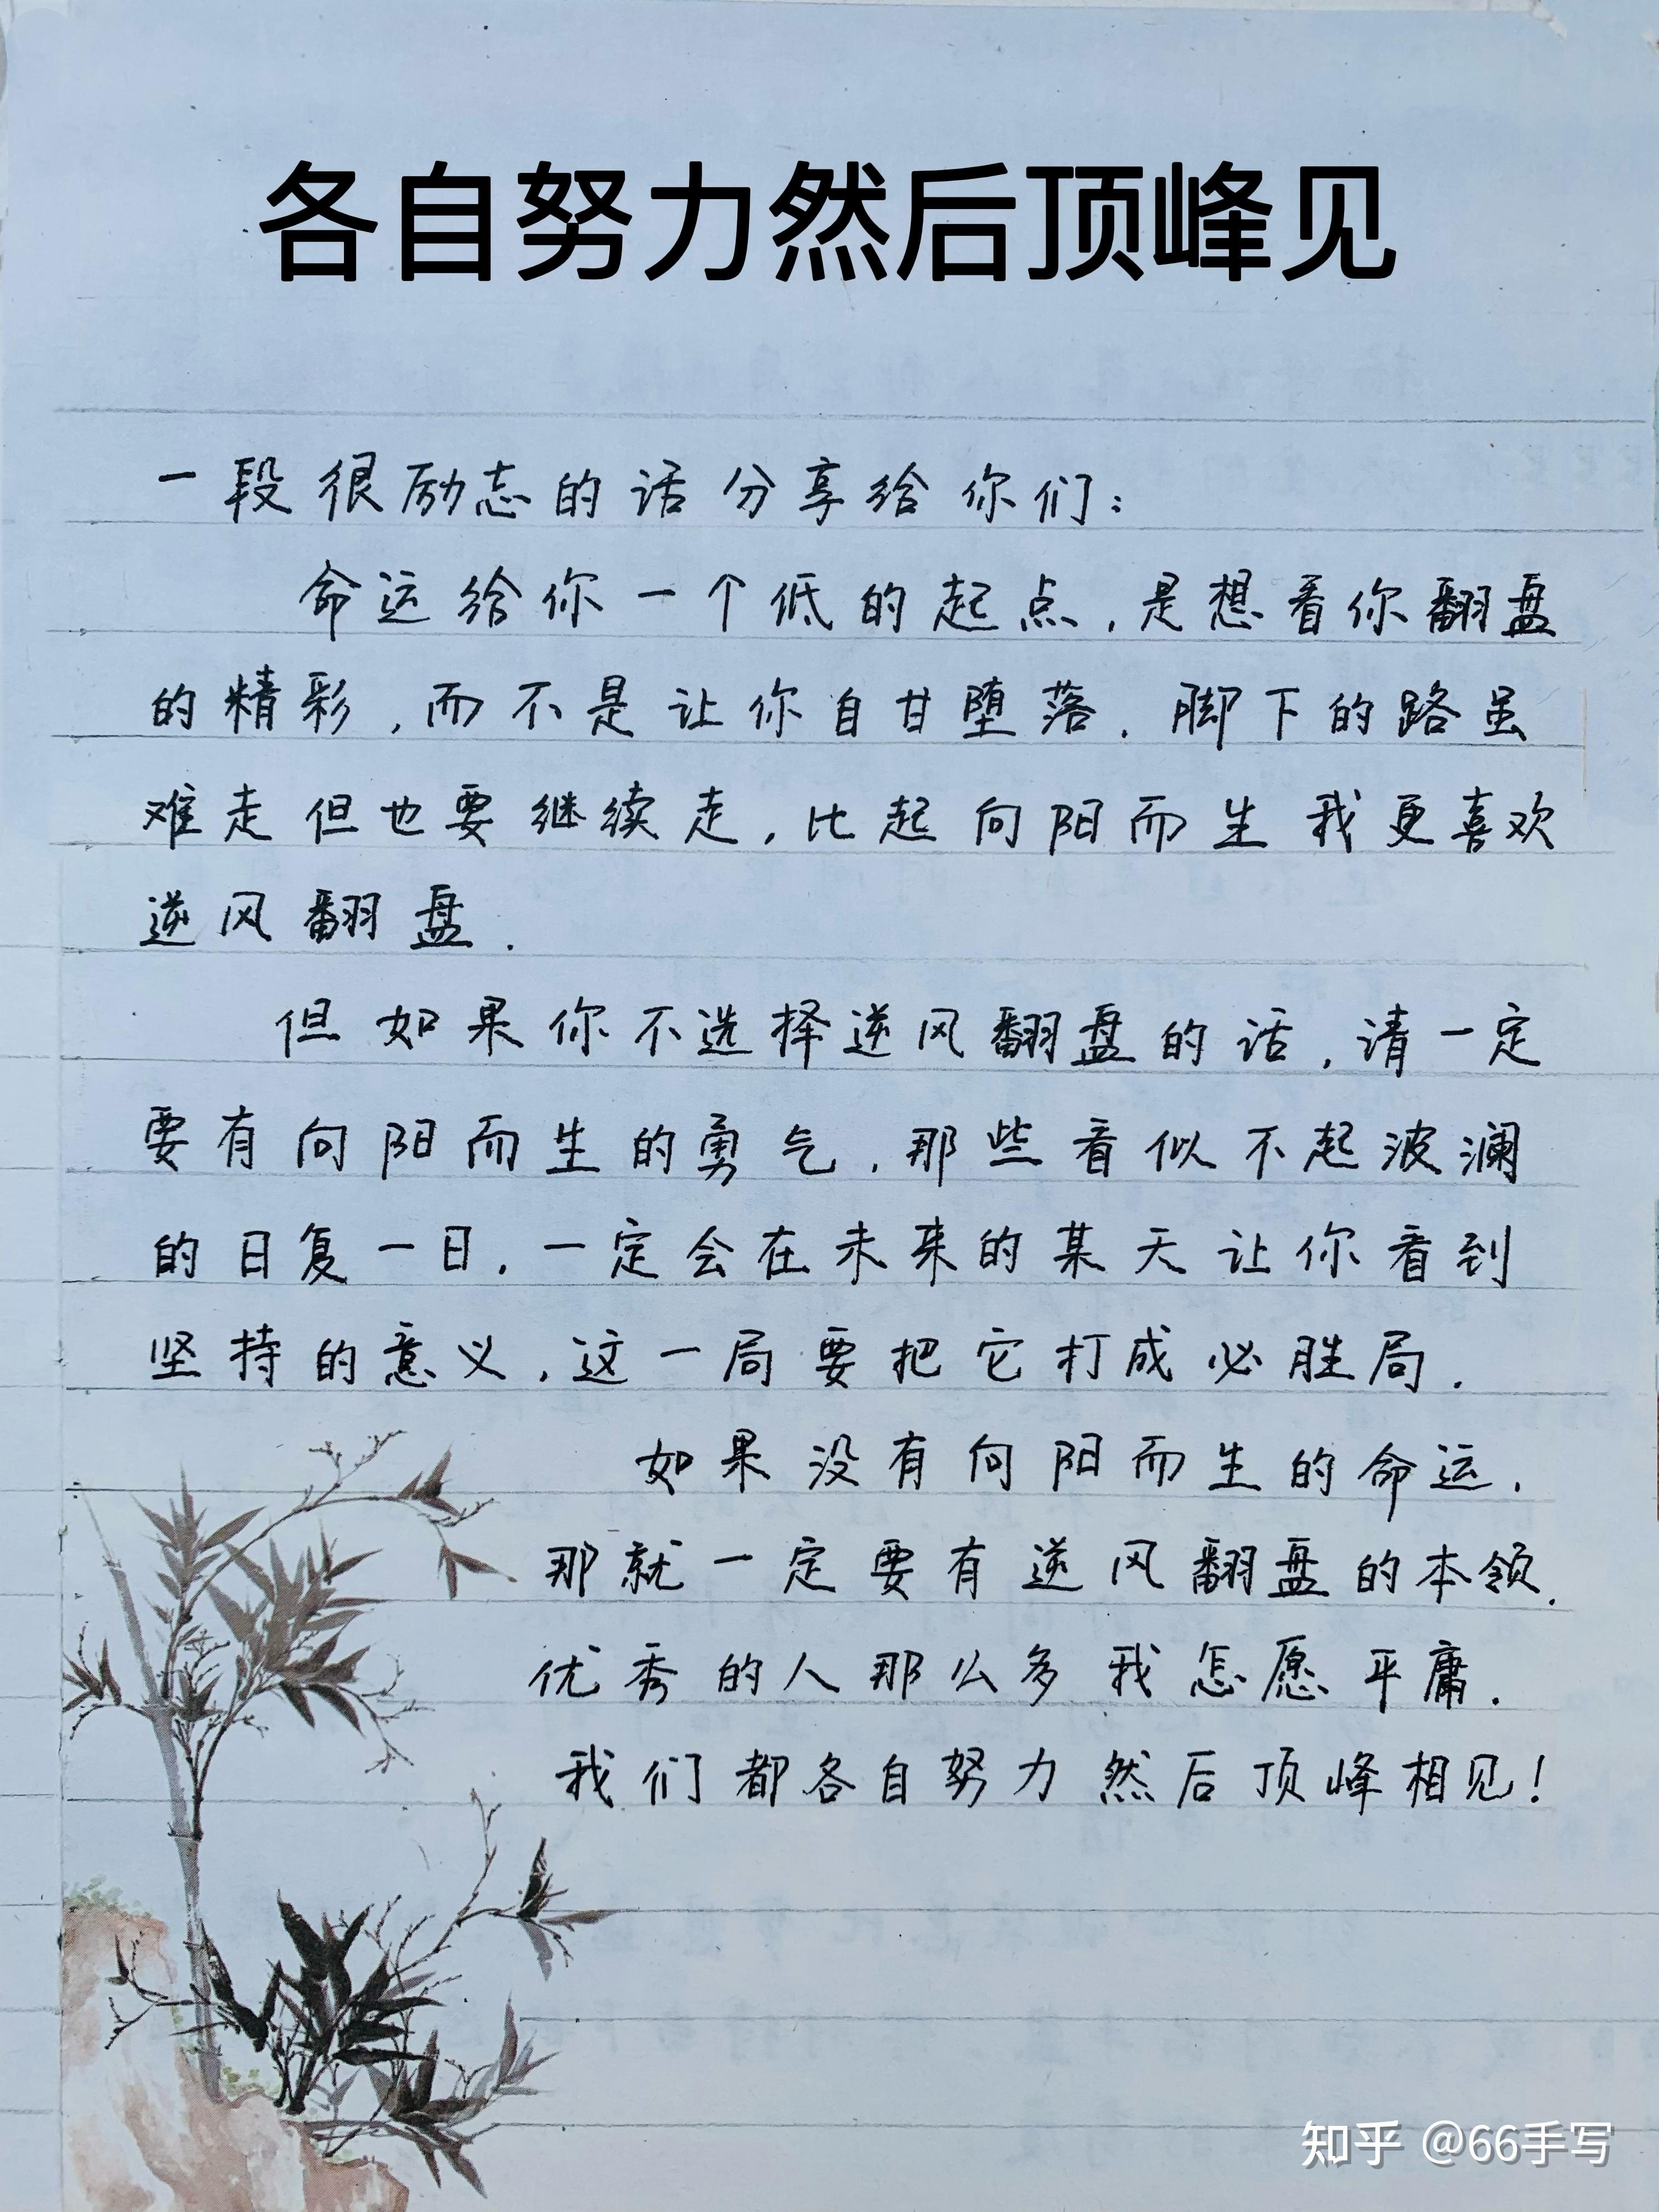 各自努力然后顶峰见
一段很励志的话分享给你们:
命运给你一个低的起点,是想看你翻盘
的精彩,而不是让你自甘堕落.脚下的路虽
难走但也要继续走,比起向阳而生我更喜欢
逆风翻盘.
但如果你不选择逆风翻盘的话,请一定
要有向阳而生的勇气,那些看似不起波澜
的日复一日,一定会在未来的某天让你看到
坚持的意义,这一局要把它打成必胜局.
如果没有向阳而生的命运,
那就一定要有逆风翻盘的本领.
优秀的人那么多我怎愿平庸.
我们都各自努力然后顶峰相见!
知乎 @66手写